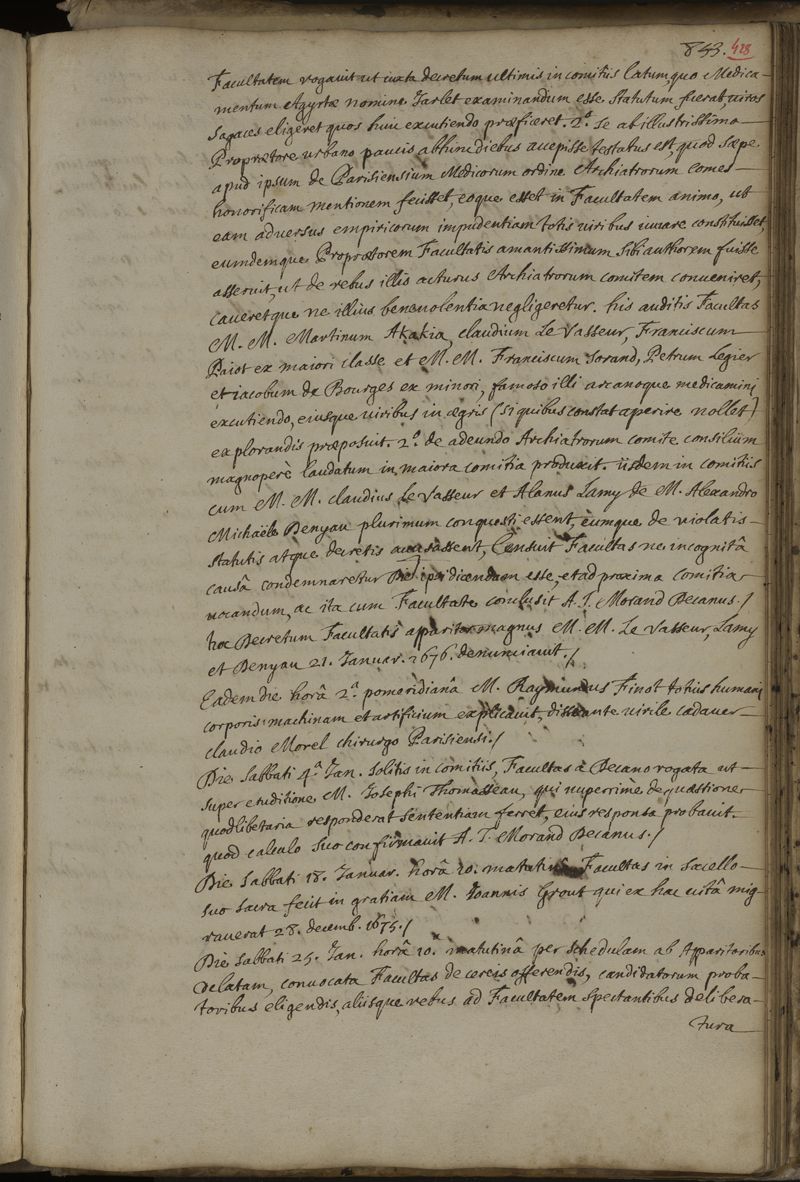 853. 428
Facultatem rogauit ut iuxta decretum ultimis in comitiis latum, quo Medica-
mentum Agyrtæ nomine Jarlet examinandum esse statutum fuerat, viros
sagaces eligeret quos huic excutiendo præficeret. 2°. se ab illustrissimo
Proprætore urbano paucis abhinc diebus accepisse testatus est, quod sæpe
apud ipsum de Parisiensium Medicorum ordine Archiatrorum Comes
honorificam mentionem fecisset, eoque esset in Facultatem animo, ut
eam adversus empiricorum impudentiam totis viribus iuuare constituisset,
eumdemque Proprætorem Facultatis amantissimum sibi authorem fuisse
asseruit, ut de rebus illis acturus Archiatrorum comitem conueniret,
caueretque ne illius beneuolentia negligeretur. his auditis Facultas
M. M. Martinum Akakia, claudium Le Vasseur, Franciscum
Paiot ex maiori classe et M. M. Franciscum Sorand, Petrum Legier
et iacobum de Bourges ex minori, famoso illi arcanoque medicamini
excutiendo, eiusque viribus in ægris (si quibus constat aperire nollet)
explorandis præposuit. 2°. de adeundo Archiatrorum comite consilium
magnoperè laudatum in maiora comitia produxit. iisdem in comitiis
cum M. M. claudius Le Vasseur et Alanus Lamy de M. Alexandro
Michaële Denyau plurimum conquesti essent, eumque de violatis
statutis atque decretis accusassent, Censuit Facultas ne incognitâ
causâ condemnaretur Diei ipsi dicendam esse, et ad proxima comitia
vocandum, ac ita cum Facultate conclusit A. J. Morand Decanus./
hoc Decretum Facultatis apparitor magnus M. M. Le Vasseur, Lamy
et Denyau 21. Januar. 1676. denunciauit./
Eadem die horâ 2ª. pomeridianâ M. Raymundus Finot totius humani
corporis machinam et artificium explicauit, dissecante virile cadauer
claudio Morel chirurgo Parisiensi./
Die Sabbati 4ª Jan. solitis in comitiis, Facultas a Decano rogata ut
super eruditione M. Josephi Thomasseau, qui nuperrime de quæstione
quodlibetaria responderat sententiam ferret, eius responsa probauit.
quod calculo suo confirmauit A. J. Morand Decanus./
Die Sabbati 18. Januar. horâ 10. matutinâ Facultas in sacello
suo sacra fecit in gratiam M. Joannis Grout qui ex hac vitâ mig-
rauerat 28. decemb. 1675./
Die Sabbati 25. Jan. horâ 10ª. matutinâ per schedulam ab Apparitoribus
delatam, conuocata Facultas de cereis offerendis, candidatorum proba-
toribus eligendis, aliisque rebus ad Facultatem spectantibus delibera-
tura